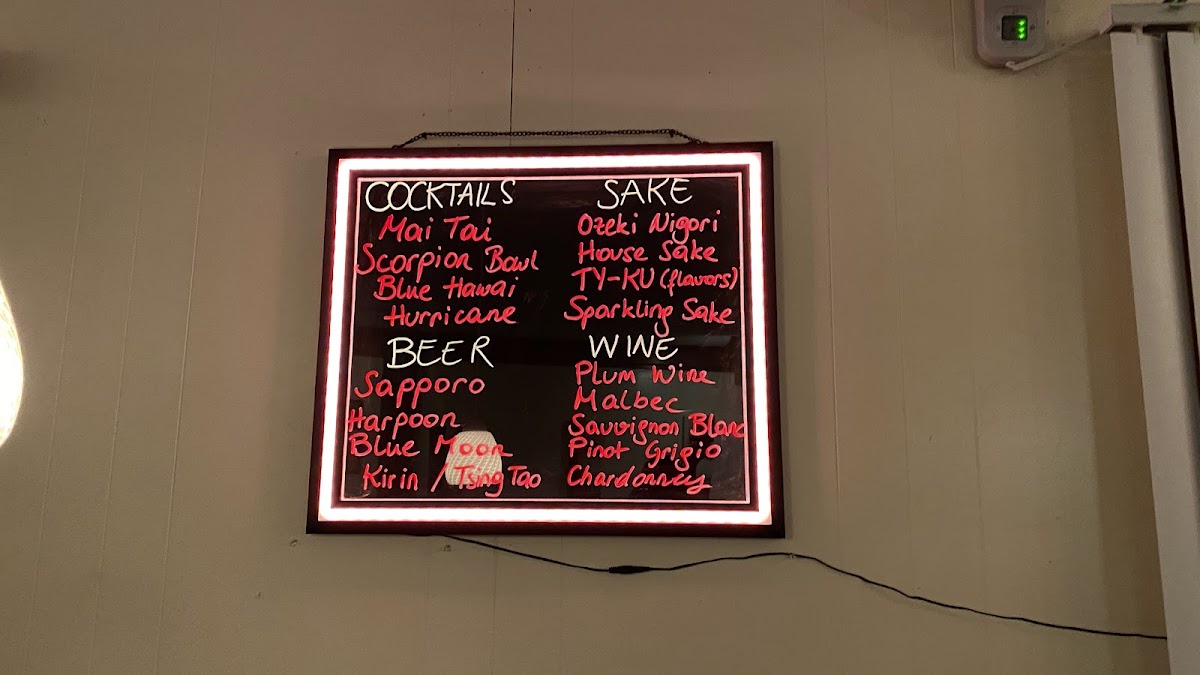 COCKTAILS
Mai Tai
Scorpion Bowl
Blue Hawai
Hurricane
BEER
Sapporo
Harpoon
Blue Moon
Kirin / Tsing Tao
SAKE
Ozeki Nigori
House Sake
TY-KU (flavors)
Sparkling Sake
WINE
Plum Wine
Malbec
Sauvignon Blanc
Pinot Grigio
Chardonney